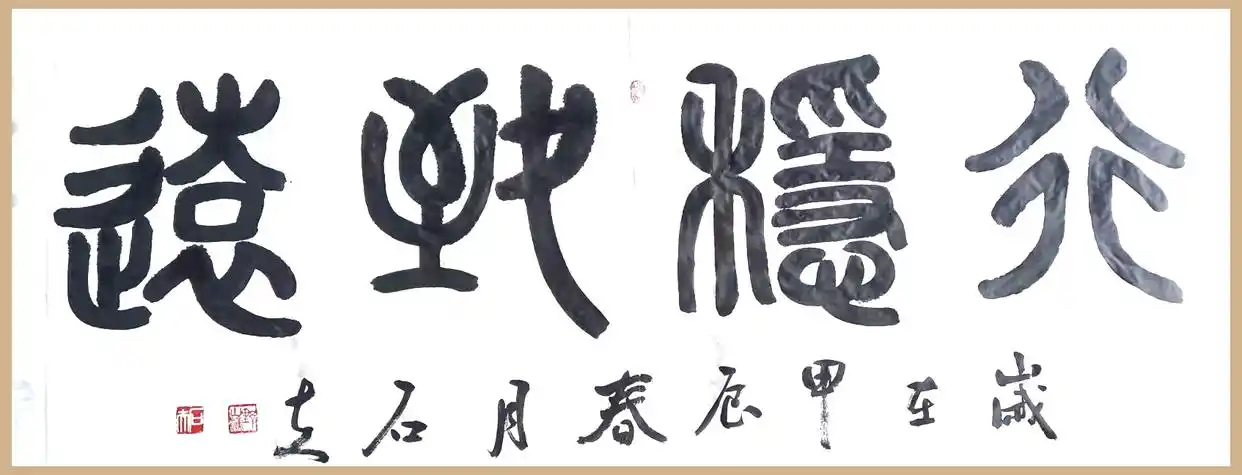 行穩致遠
歲在甲辰春月石立